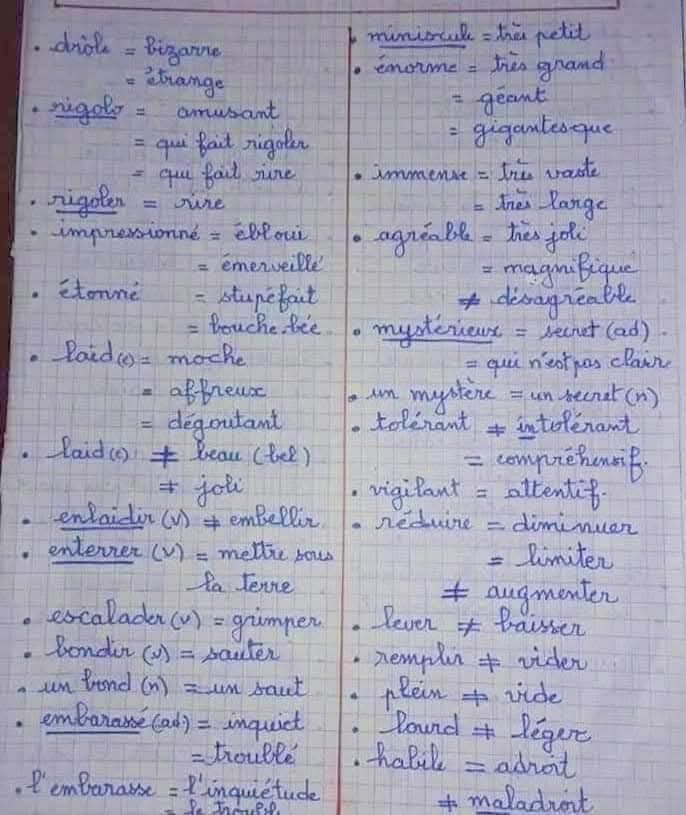 . drôle = bizarre
= étrange
. rigolo = amusant
= qui fait rigoler
= qui fait rire
. rigoler = rire
. impressionné = ébloui
= émerveillé
. étonné = stupéfait
= bouche-bée
. laid(e) = moche
= affreux
= dégoutant
. laid(e) ≠ beau (bel)
≠ joli
. enlaidir (v) ≠ embellir
. enterrer (v) = mettre sous
la terre
. escalader (v) = grimper
. bondir (v) = sauter
. un bond (n) = un saut
. embarassé (ad) = inquiet
= troublé
. l'embarasse = l'inquiétude
= le trouble
. miniscule = très petit
. énorme = très grand
= géant
= gigantesque
. immense = très vaste
= très large
. agréable = très joli
= magnifique
≠ désagréable
. mystérieux = secret (ad)
= qui n'est pas clair
. un mystère = un secret (n)
. tolérant ≠ intolérant
= compréhensif.
. vigilant = attentif.
. réduire = diminuer
= limiter
≠ augmenter
. lever ≠ baisser
. remplir ≠ vider
. plein ≠ vide
. lourd ≠ léger
. habile = adroit
≠ maladroit